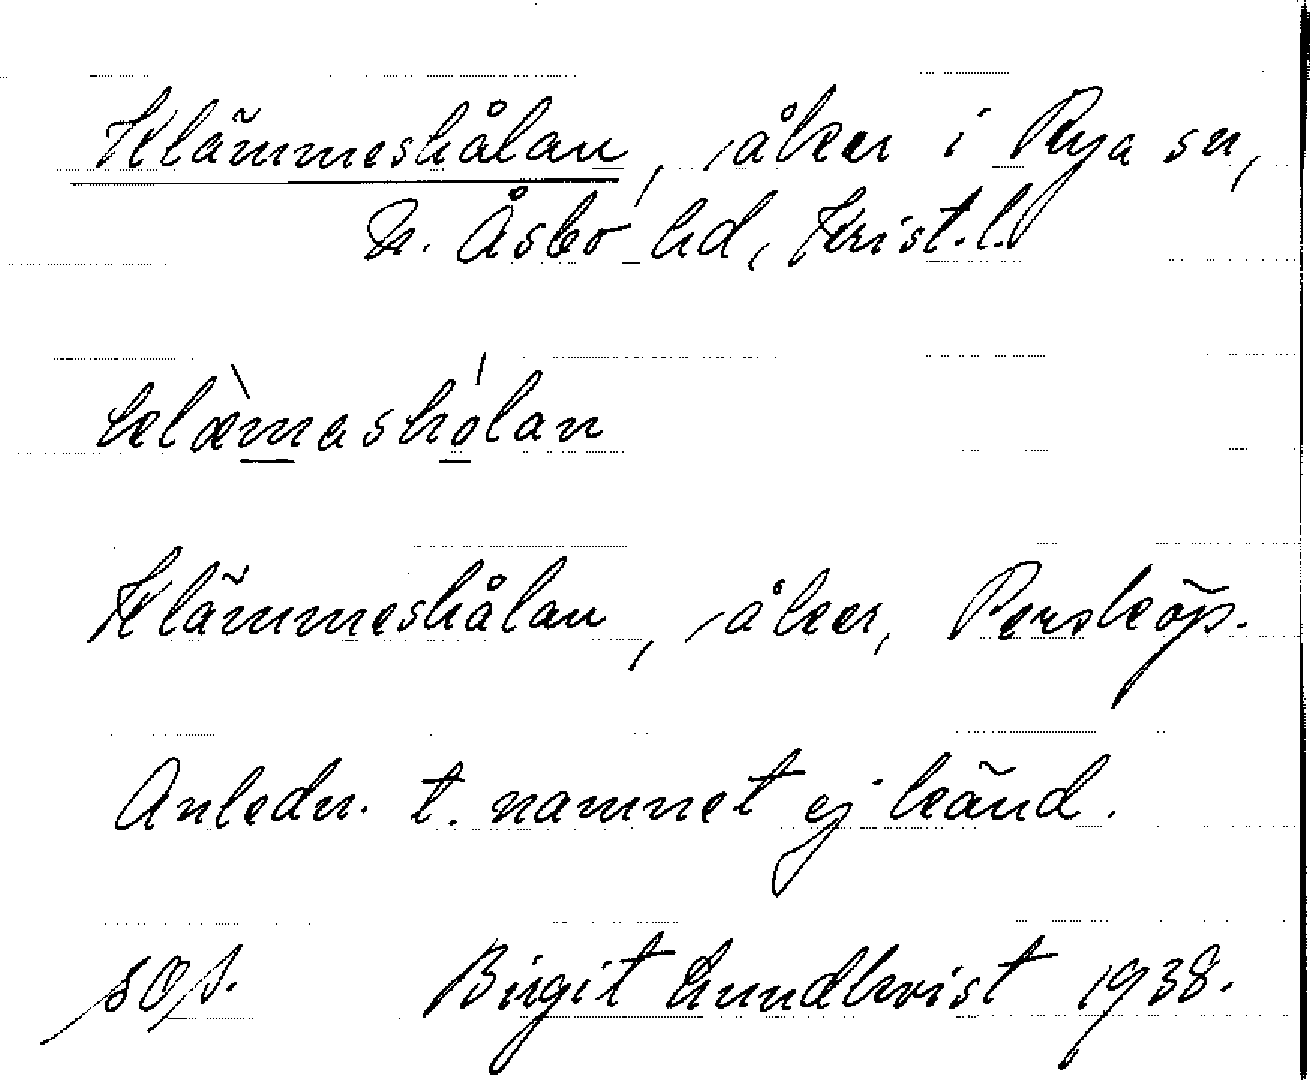 Klämmeshålan, åker i Rya sn,
N. Åsbo hd, Krist.l.
klæ̀mashólan
Klämmeshålan, åker, Perskōp.
Anledn. t. namnet ej känd.
Birgit Lundkvist 1938.